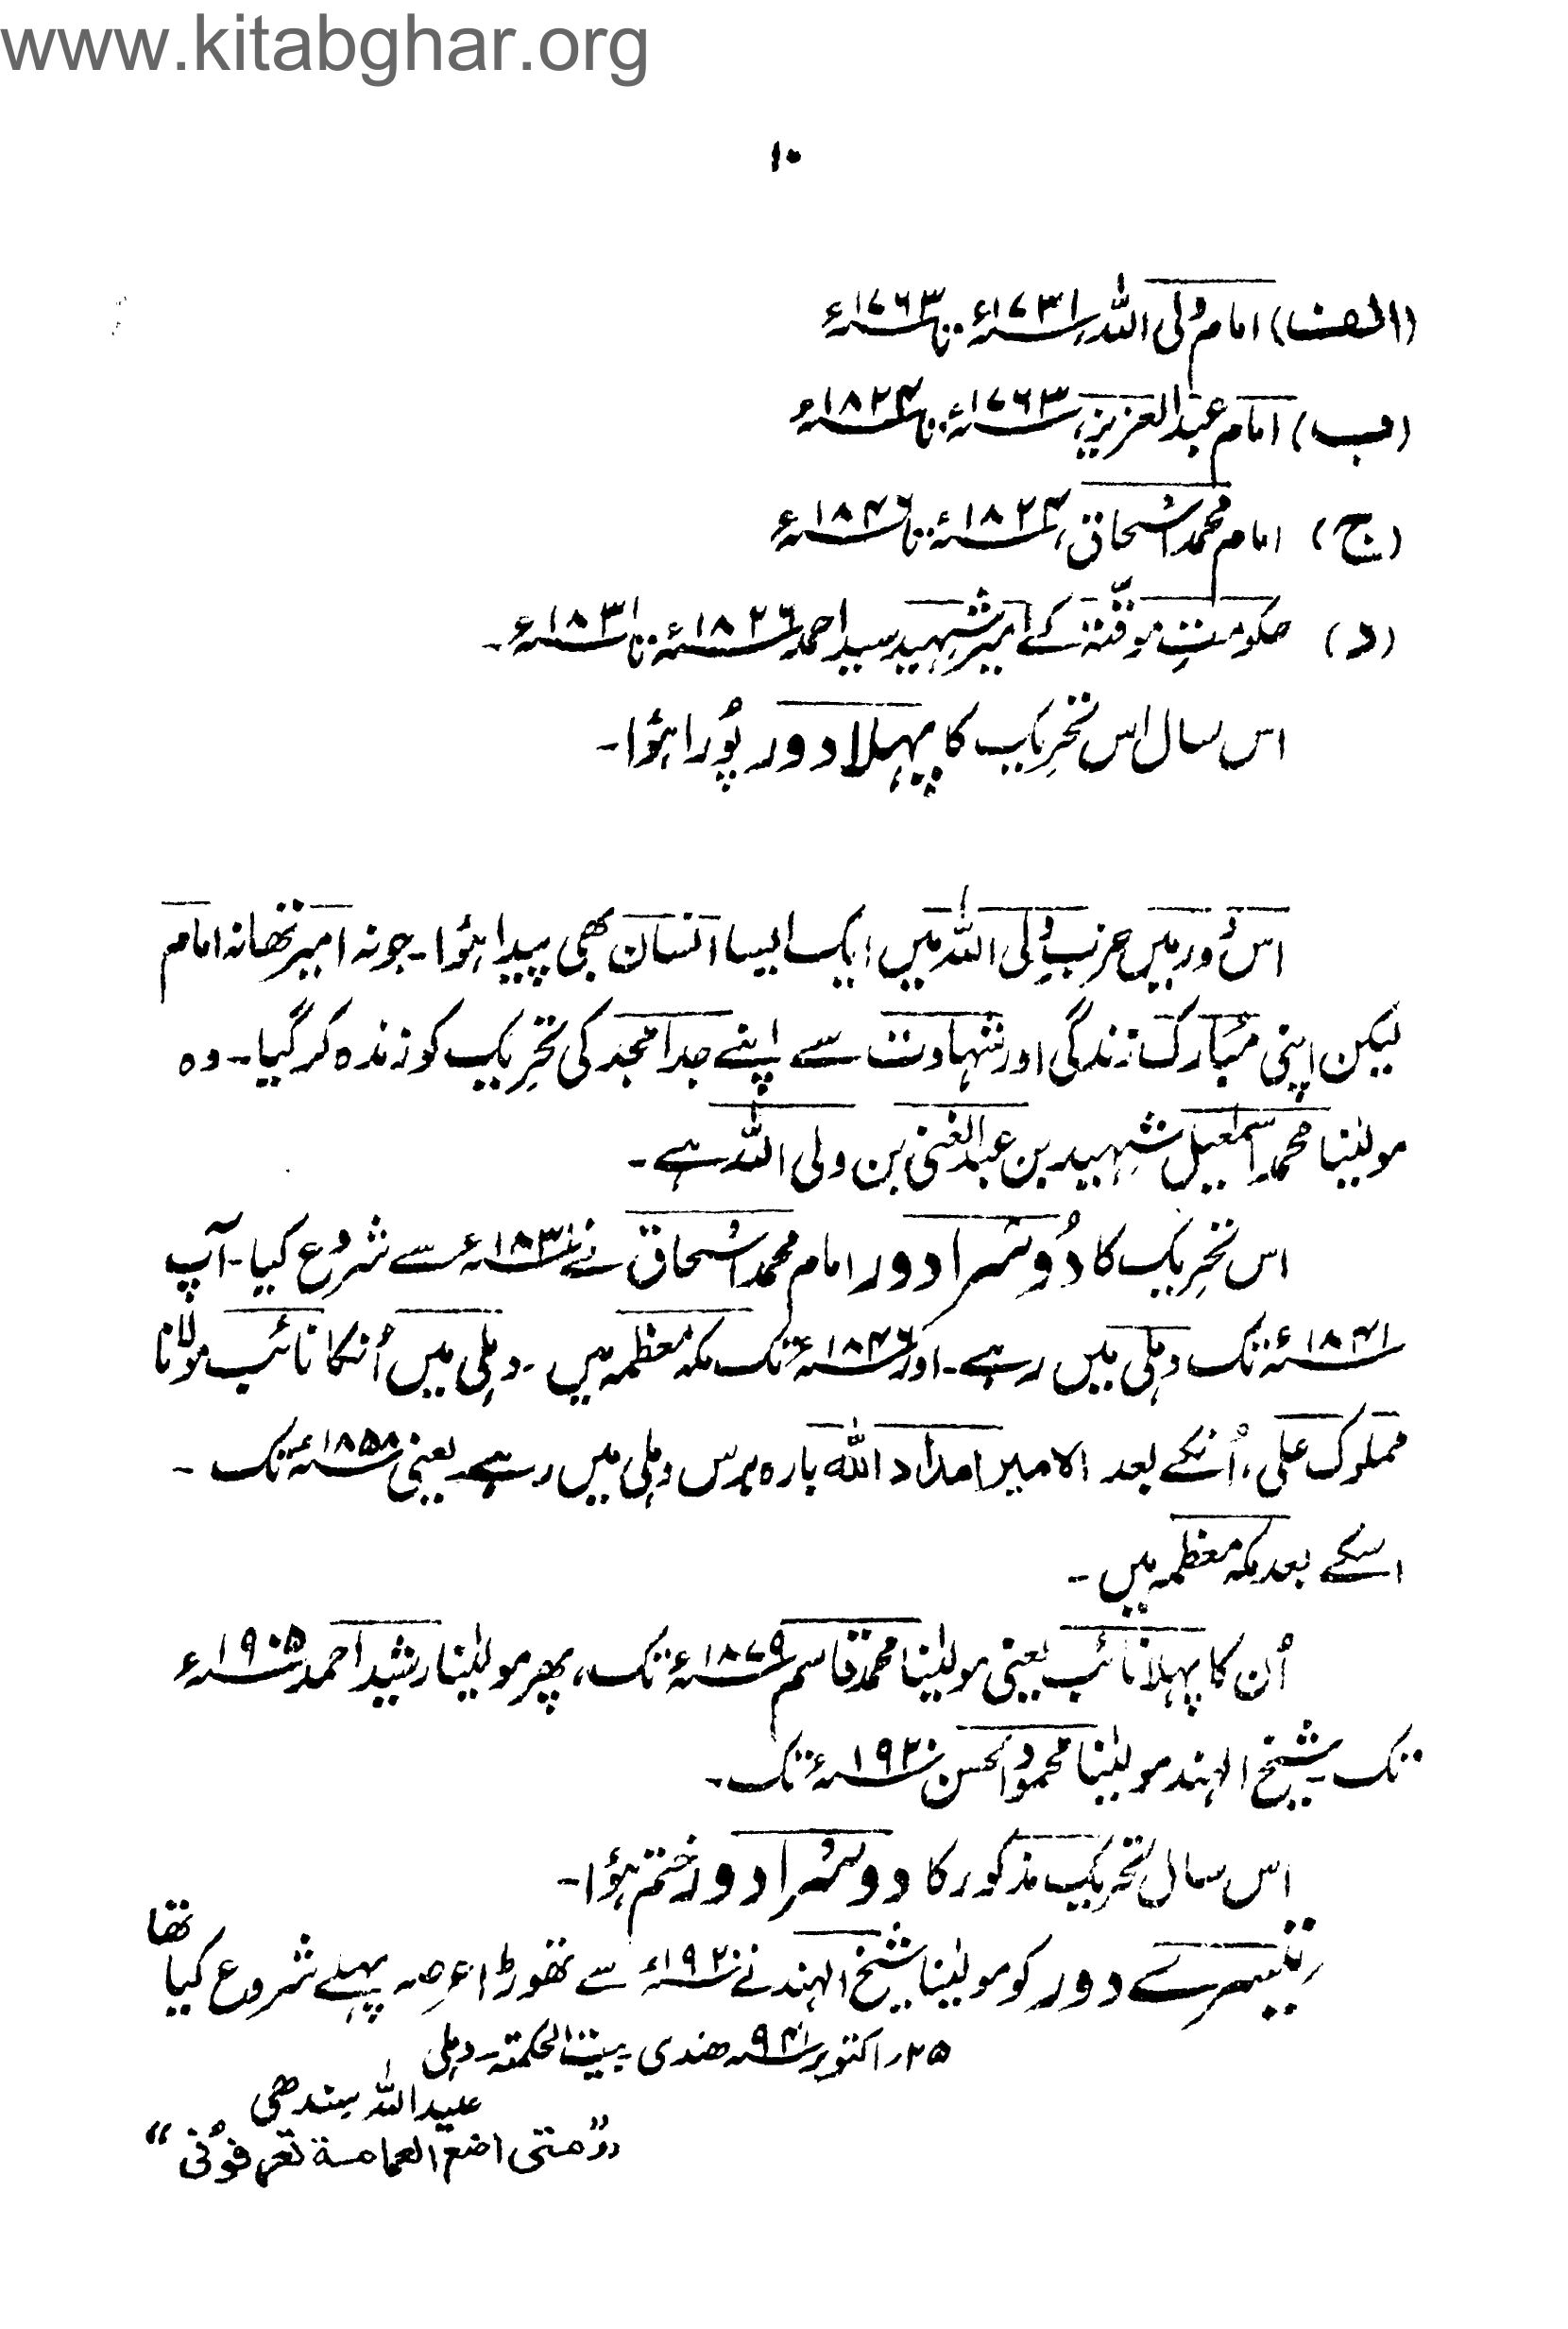 www.kitabghar.org
۱۰
(الف) امام ولی اللہ، ۱۷۳۱ء تا ۱۷۶۳ء
(ب) امام عبدالعزیز، ۱۷۶۳ء تا ۱۸۲۴ء
(ج) امام محمد اسحاق، ۱۸۲۴ء تا ۱۸۴۶ء
(د) حکومتِ موقّتہ کے امیر شہید سید احمد ۱۸۲۶ء تا ۱۸۳۱ء۔
اس سال اس تحریک کا پہلا دور پُورا ہؤا۔
اس دور میں حزب ولی اللہ میں ایک ایسا انسان بھی پیدا ہؤا۔ جو نہ امیر تھا نہ امام
لیکن اپنی مبارک زندگی اور شہادت سے اپنے جد امجد کی تحریک کو زندہ کر گیا۔ وہ
مولٰینا محمد اسمٰعیل شہید بن عبدالغنی بن ولی اللہ ہے۔
اس تحریک کا دُوسرا دور امام محمد اسحاق نے ۱۸۳۱ء سے شروع کیا۔ آپ
۱۸۴۱ء تک دہلی میں رہے۔ اور ۱۸۴۶ء تک مکہ معظمہ میں۔ دہلی میں اُنکا نائب مولانا
مملوک علی، اُنکے بعد الامیر امداد اللہ بارہ برس دہلی میں رہے۔ یعنی ۱۸۵۸ء تک۔
اسکے بعد مکہ معظمہ میں۔
اُن کا پہلا نائب یعنی مولٰینا محمد قاسم ۱۸۷۹ء تک، پھر مولٰینا رشید احمد ۱۹۰۵ء
تک۔ شیخ الہند مولٰینا محمود الحسن ۱۹۲۰ء تک۔
اس سال تحریک مذکور کا دوسرا دور ختم ہؤا۔
تیسرے دور کو مولٰینا شیخ الہند نے ۱۹۲۰ء سے تھوڑا عرصہ پہلے شروع کیا تھا
۲۵؍ اکتوبر ۹۴۱ ھندی۔ بیت الحکمتہ۔ دہلی
عبید اللہ سندھی
”متی اضع العمامة تعرفونی“